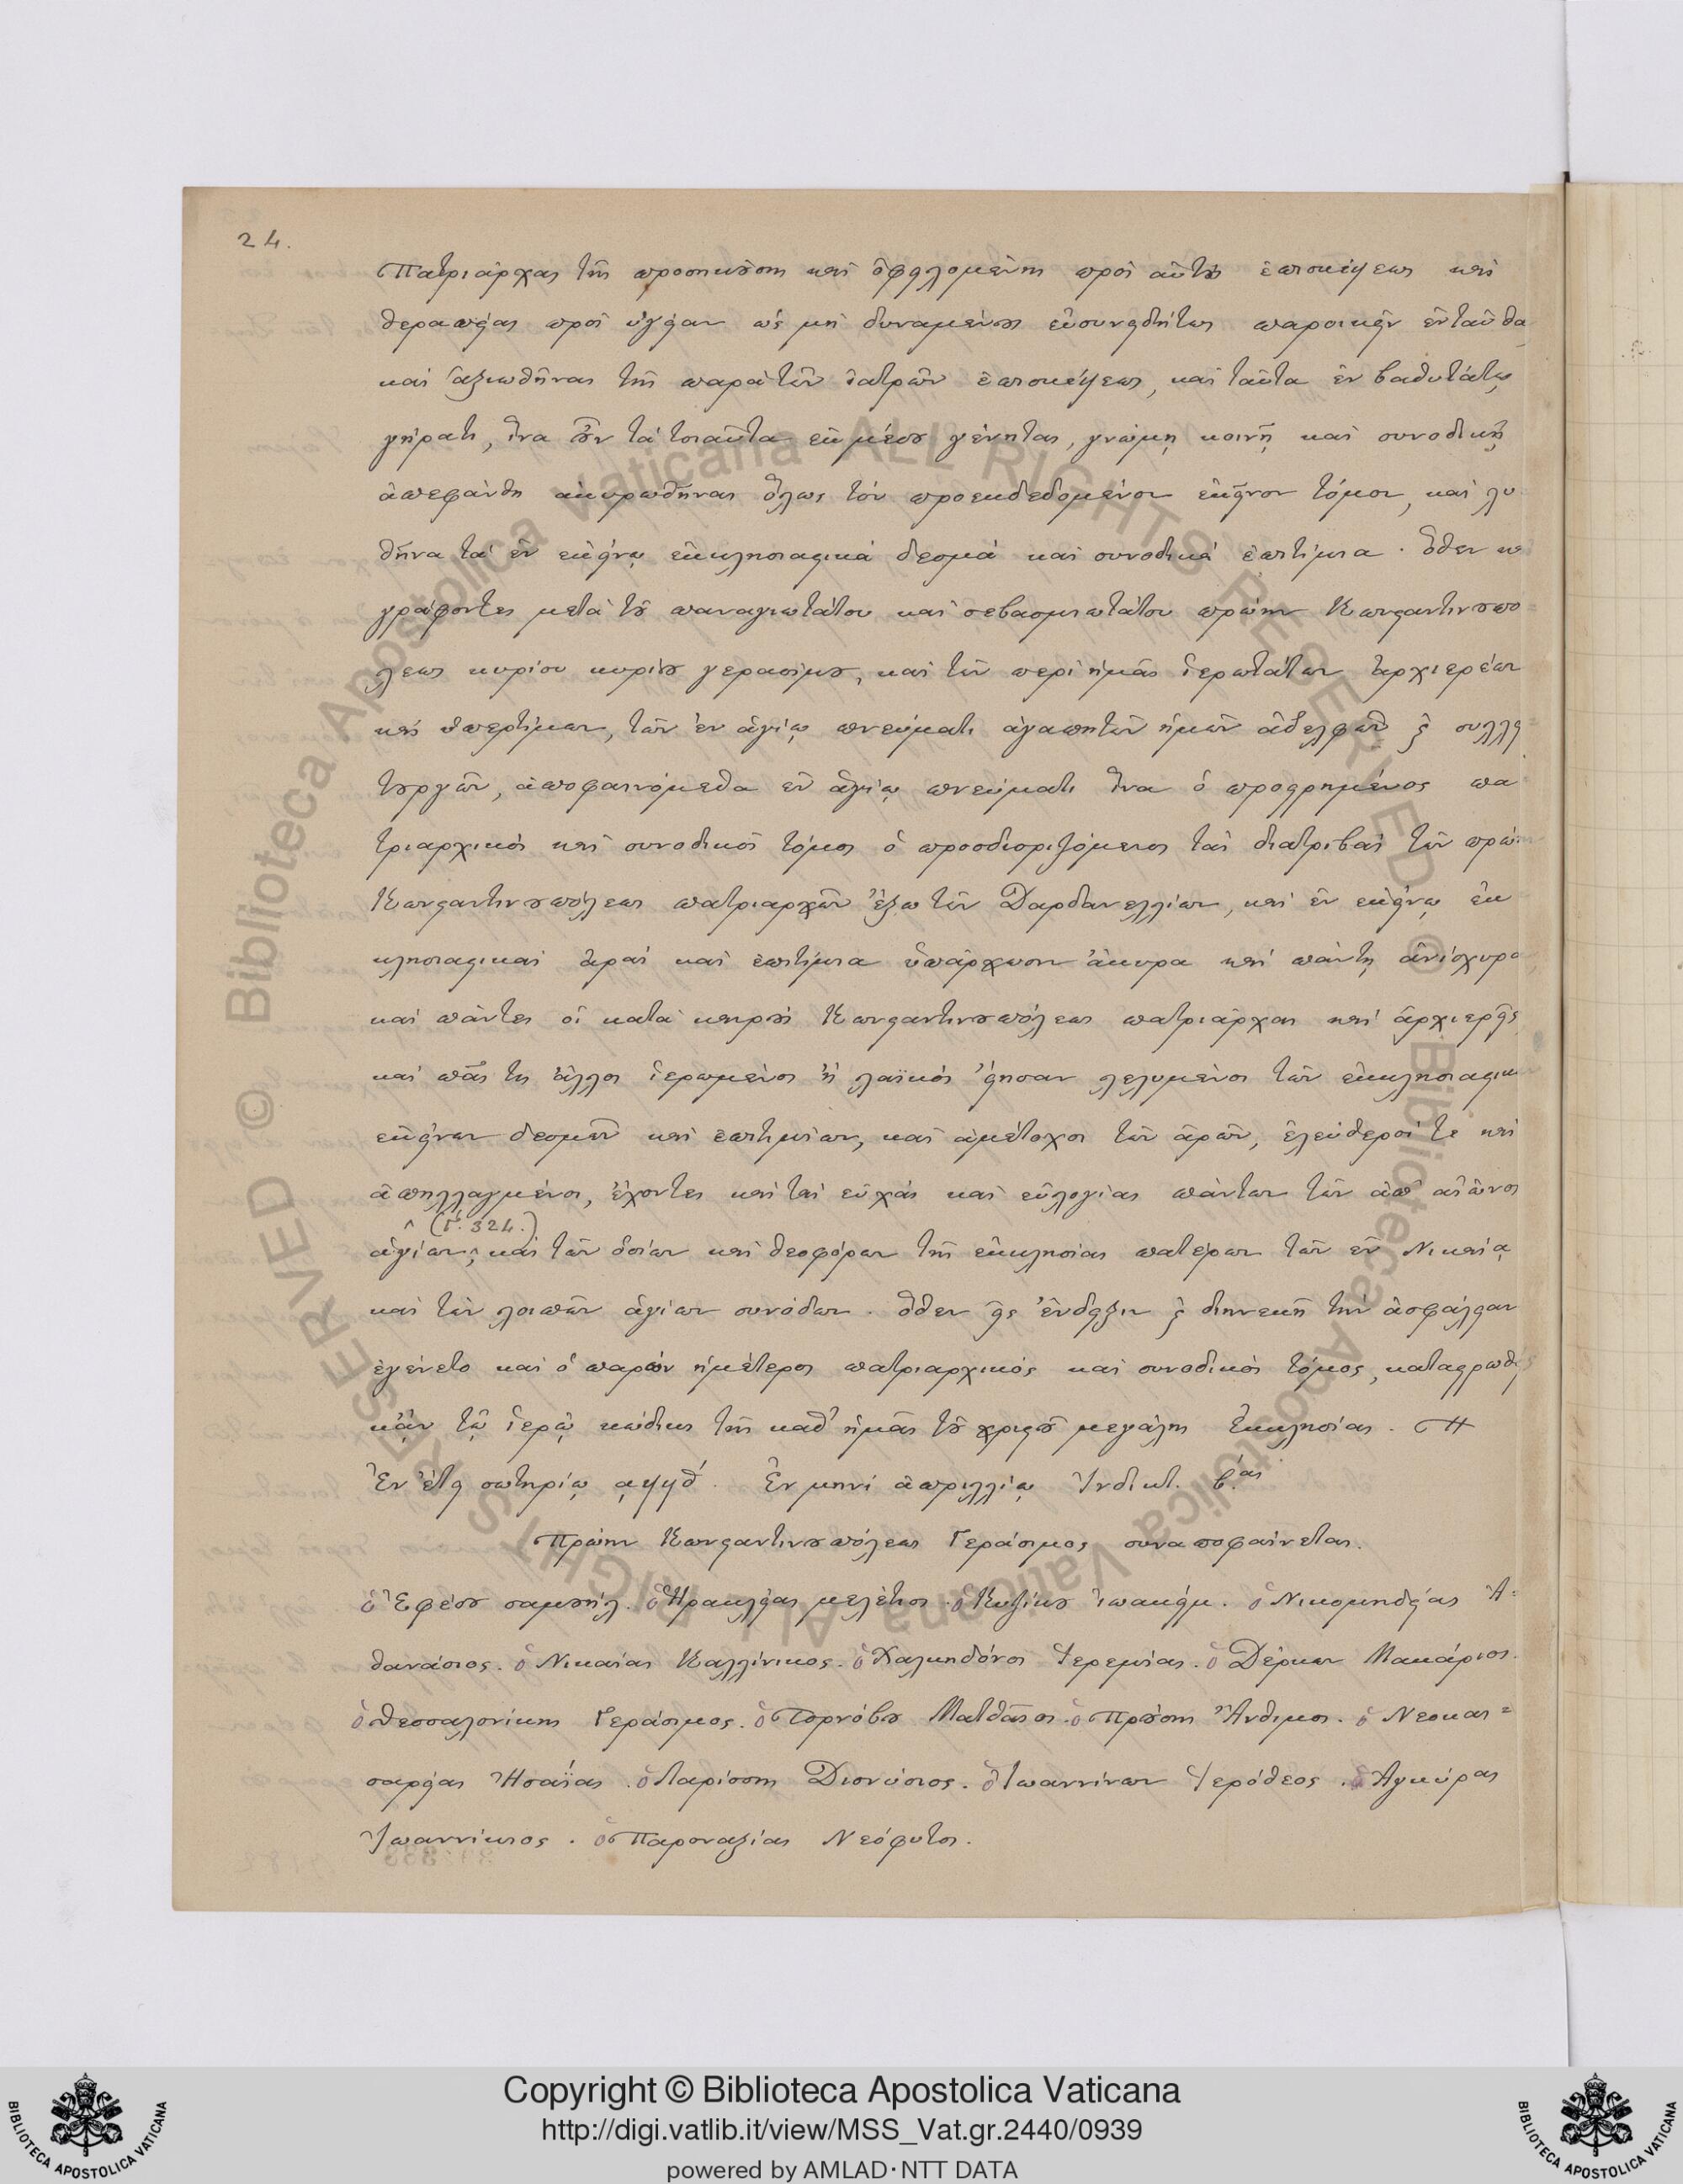 24.
Πατριάρχας τῆς προσηκούσης καὶ ὀφειλομένης πρὸς αὐτοὺς ἐπισκέψεως καὶ
θεραπείας πρὸς ὑγείαν ὡς μὴ δυναμένους εὐσυνειδήτως παροικεῖν ἐνταῦθα
καὶ ἀξιωθῆναι τῆς παρὰ τῶν ἰατρῶν ἐπισκέψεως, καὶ ταῦτα ἐν βαθυτάτῳ
γήρατι, ἵνα οὖν τὰ τοιαῦτα ἐκ μέσου γένηται, γνώμῃ κοινῇ καὶ συνοδικῇ
ἀπεφάνθη ἀκυρωθῆναι ὅλως τὸν προεκδεδομένον ἐκεῖνον τόμον, καὶ λυ
θῆναι τὰ ἐν ἐκείνῳ ἐκκλησιαστικὰ δεσμὰ καὶ συνοδικὰ ἐπιτίμια. ὅθεν
γράφοντες μετὰ τοῦ παναγιωτάτου καὶ σεβασμιωτάτου πρώην Κωνσταντινουπό
λεως κυρίου κυρίου γερασίμου, καὶ τῶν περὶ ἡμᾶς ἱερωτάτων ἀρχιερέων
καὶ ὑπερτίμων, τῶν ἐν ἁγίῳ πνεύματι ἀγαπητῶν ἡμῶν ἀδελφῶν ϗ συλλει
τουργῶν, ἀποφαινόμεθα ἐν ἁγίῳ πνεύματι ἵνα ὁ προειρημένος πα
τριαρχικὸς καὶ συνοδικὸς τόμος ὁ προσδιοριζόμενος τὰς διατριβὰς τῶν πρώην
Κωνσταντινουπόλεως πατριαρχῶν ἔξω τῶν Δαρδανελλίων, καὶ ἐν ἐκείνῳ ἐκ
κλησιαστικαὶ ἀραὶ καὶ ἐπιτίμια ὑπάρχωσιν ἄκυρα καὶ πάντῃ ἀνίσχυρα
καὶ πάντες οἱ κατὰ καιροὺς Κωνσταντινουπόλεως πατριάρχαι καὶ ἀρχιερεῖς
καὶ πᾶς τις ἄλλος ἱερωμένος ἢ λαϊκὸς εἴησαν λελυμένοι τῶν ἐκκλησιαστικ
ἐκείνων δεσμῶν καὶ ἐπιτιμίων, καὶ ἀμέτοχοι τῶν ἀρῶν, ἐλεύθεροί τε καὶ
ἀπηλλαγμένοι, ἔχοντες καὶ τὰς εὐχὰς καὶ εὐλογίας πάντων τῶν ἀπ' αἰῶνος
^ (Γ. 324.)
ἁγίων, καὶ τῶν ὁσίων καὶ θεοφόρων τῆς ἐκκλησίας πατέρων τῶν ἐν Νικαίᾳ
καὶ τῶν λοιπῶν ἁγίων συνόδων. ὅθεν εἰς ἔνδειξιν ϗ διηνεκῆ τὴν ἀσφάλειαν
ἐγένετο καὶ ὁ παρὼν ἡμέτερος πατριαρχικὸς καὶ συνοδικὸς τόμος, καταστρωθεὶς
κἀν τῷ ἱερῷ κώδικι τῆς καθ' ἡμᾶς τοῦ χριστοῦ μεγάλης Ἐκκλησίας.
Ἐν ἔτει σωτηρίῳ Ἐν μηνὶ ἀπριλλίῳ Ἰνδικτ. β.ας
Πρώην Κωνσταντινουπόλεως Γεράσιμος συναποφαίνεται.
ὁ Ἐφέσου σαμουήλ. ὁ Ἡρακλείας μελέτιος. ὁ Κυζίκου Ἰωακείμ. ὁ Νικομηδείας Ἀ=
θανάσιος. ὁ Νικαίας Καλλίνικος. ὁ Χαλκηδόνος Ἱερεμίας. ὁ Δέρκων Μακάριος.
ὁ θεσσαλονίκης Γεράσιμος. ὁ Τορνόβου Ματθαῖος. ὁ Προύσης Ἄνθιμος. ὁ Νεοκαι=
σαρείας Ἡσαΐας. ὁ Λαρίσσης Διονύσιος. ὁ Ἰωαννίνων Ἱερόθεος. ὁ Ἀγκύρας
Ἰωαννίκιος. ὁ Παροναξίας Νεόφυτος.
© Biblioteca Apostolica Vaticana ALL RIGHTS RESERVED © Biblioteca Apostolica Vaticana ALL RIGHTS RESERVED
Copyright © Biblioteca Apostolica Vaticana
http://digi.vatlib.it/view/MSS_Vat.gr.2440/0939
powered by AMLAD·NTT DATA
BIBLIOTECA APOSTOLICA VATICANA
BIBLIOTECA APOSTOLICA VATICANA